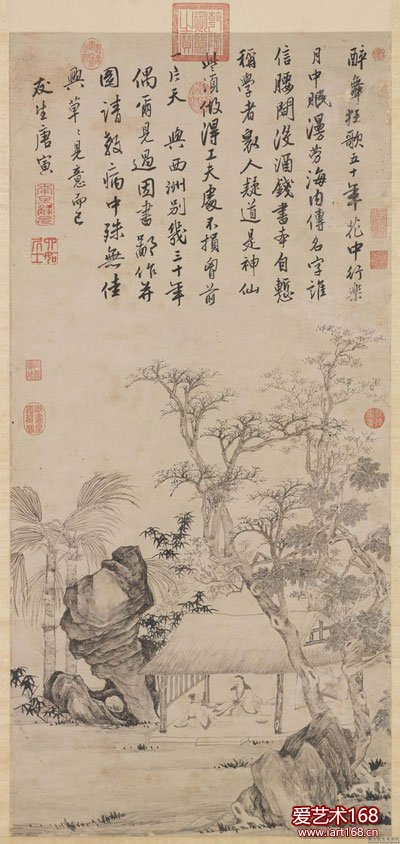 醉舞狂歌五十年花中行樂
月中眠漫勞海內傳名字誰
信腰間沒酒錢書本自慙
稱學者衆人疑道是神仙
些須做得工夫處不損胷前
一片天 與西洲別幾三十年
偶爾見過因書鄙作并
圖請教病中殊無佳
興草〻見意而已
友生唐寅
六如居士
爱艺术168
www.iart168.cn